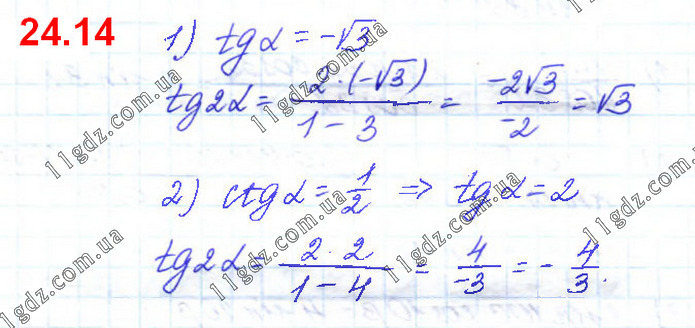 24.14
1) tgα = -√3
tg2α = 2·(-√3) / (1 - 3) = -2√3 / -2 = √3
2) ctgα = 1/2 => tgα = 2
tg2α = 2·2 / (1 - 4) = 4 / -3 = - 4/3.
11gdz.com.ua
11gdz.com.ua
11gdz.com.ua
11gdz.com.ua
11gdz.com.ua
11gdz.com.ua